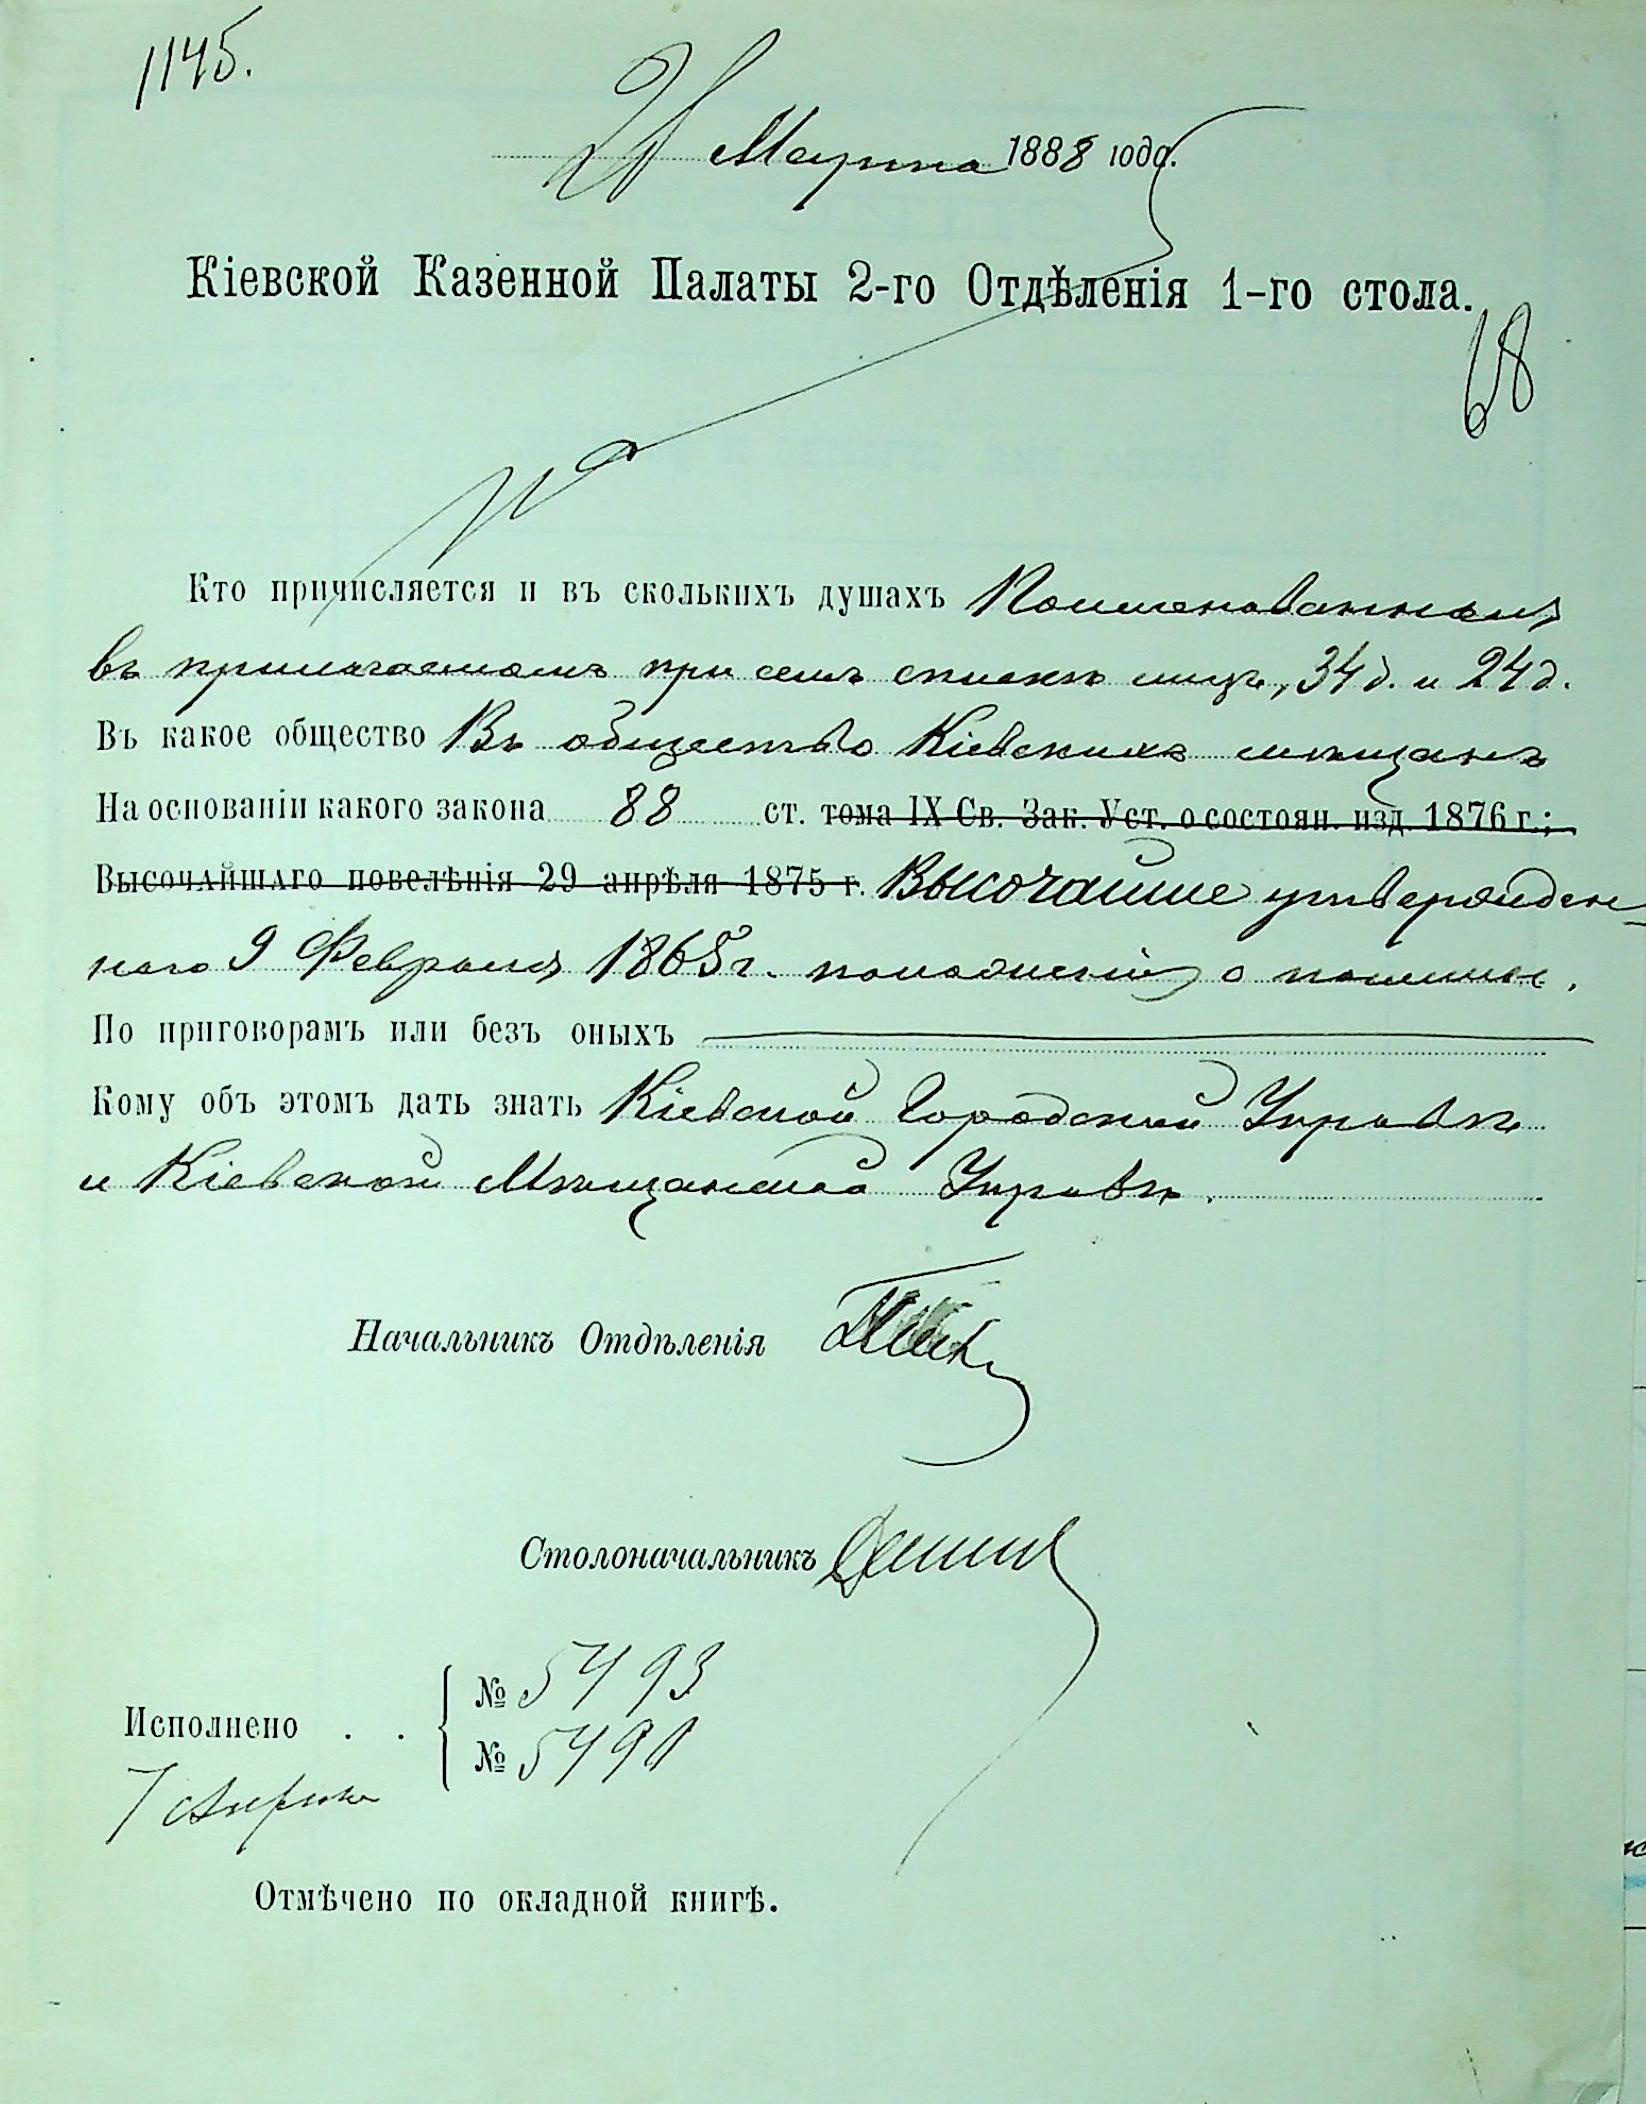 1145.
28 Марта 1888 года.
Кіевской Казенной Палаты 2-го Отдѣленія 1-го стола.
68
Кто причисляется и въ сколькихъ душахъ Поименованныя
въ прилагаемомъ при семъ спискѣ лица, 34 д. и 24 д.
Въ какое общество Въ общество Кіевскихъ мѣщанъ
На основаніи какого закона 88 ст. тома IX Св. Зак. Уст. о состоян. изд. 1876 г.;
Высочайшаго повелѣнія 29 апрѣля 1875 г. Высочайше утвержден-
наго 9 Февраля 1865 г. положенія о пошлин.
По приговорамъ или безъ оныхъ
Кому объ этомъ дать знать Кіевской Городской Управѣ
и Кіевской Мѣщанской Управѣ.
Начальникъ Отдѣленія
Столоначальникъ
Исполнено . . № 5493
№ 5490
7 Апрѣля
Отмѣчено по окладной книгѣ.